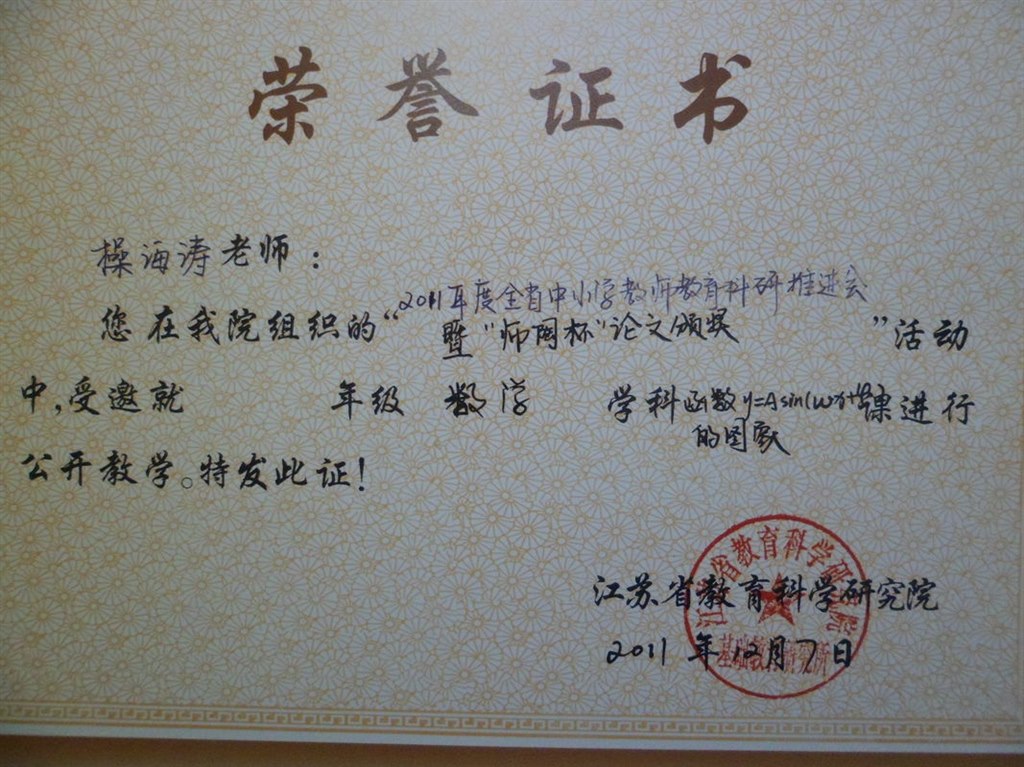 荣誉证书
操海涛老师：
您在我院组织的“2011年度全省中小学教师教育科研推进会
暨“师陶杯”论文颁奖”活动
中,受邀就 年级 数学 学科函数y=Asin(ωx+φ)课进行
的图象
公开教学。特发此证！
江苏省教育科学研究院
2011年12月7日
江苏省教育科学研究院
基础教育研究所